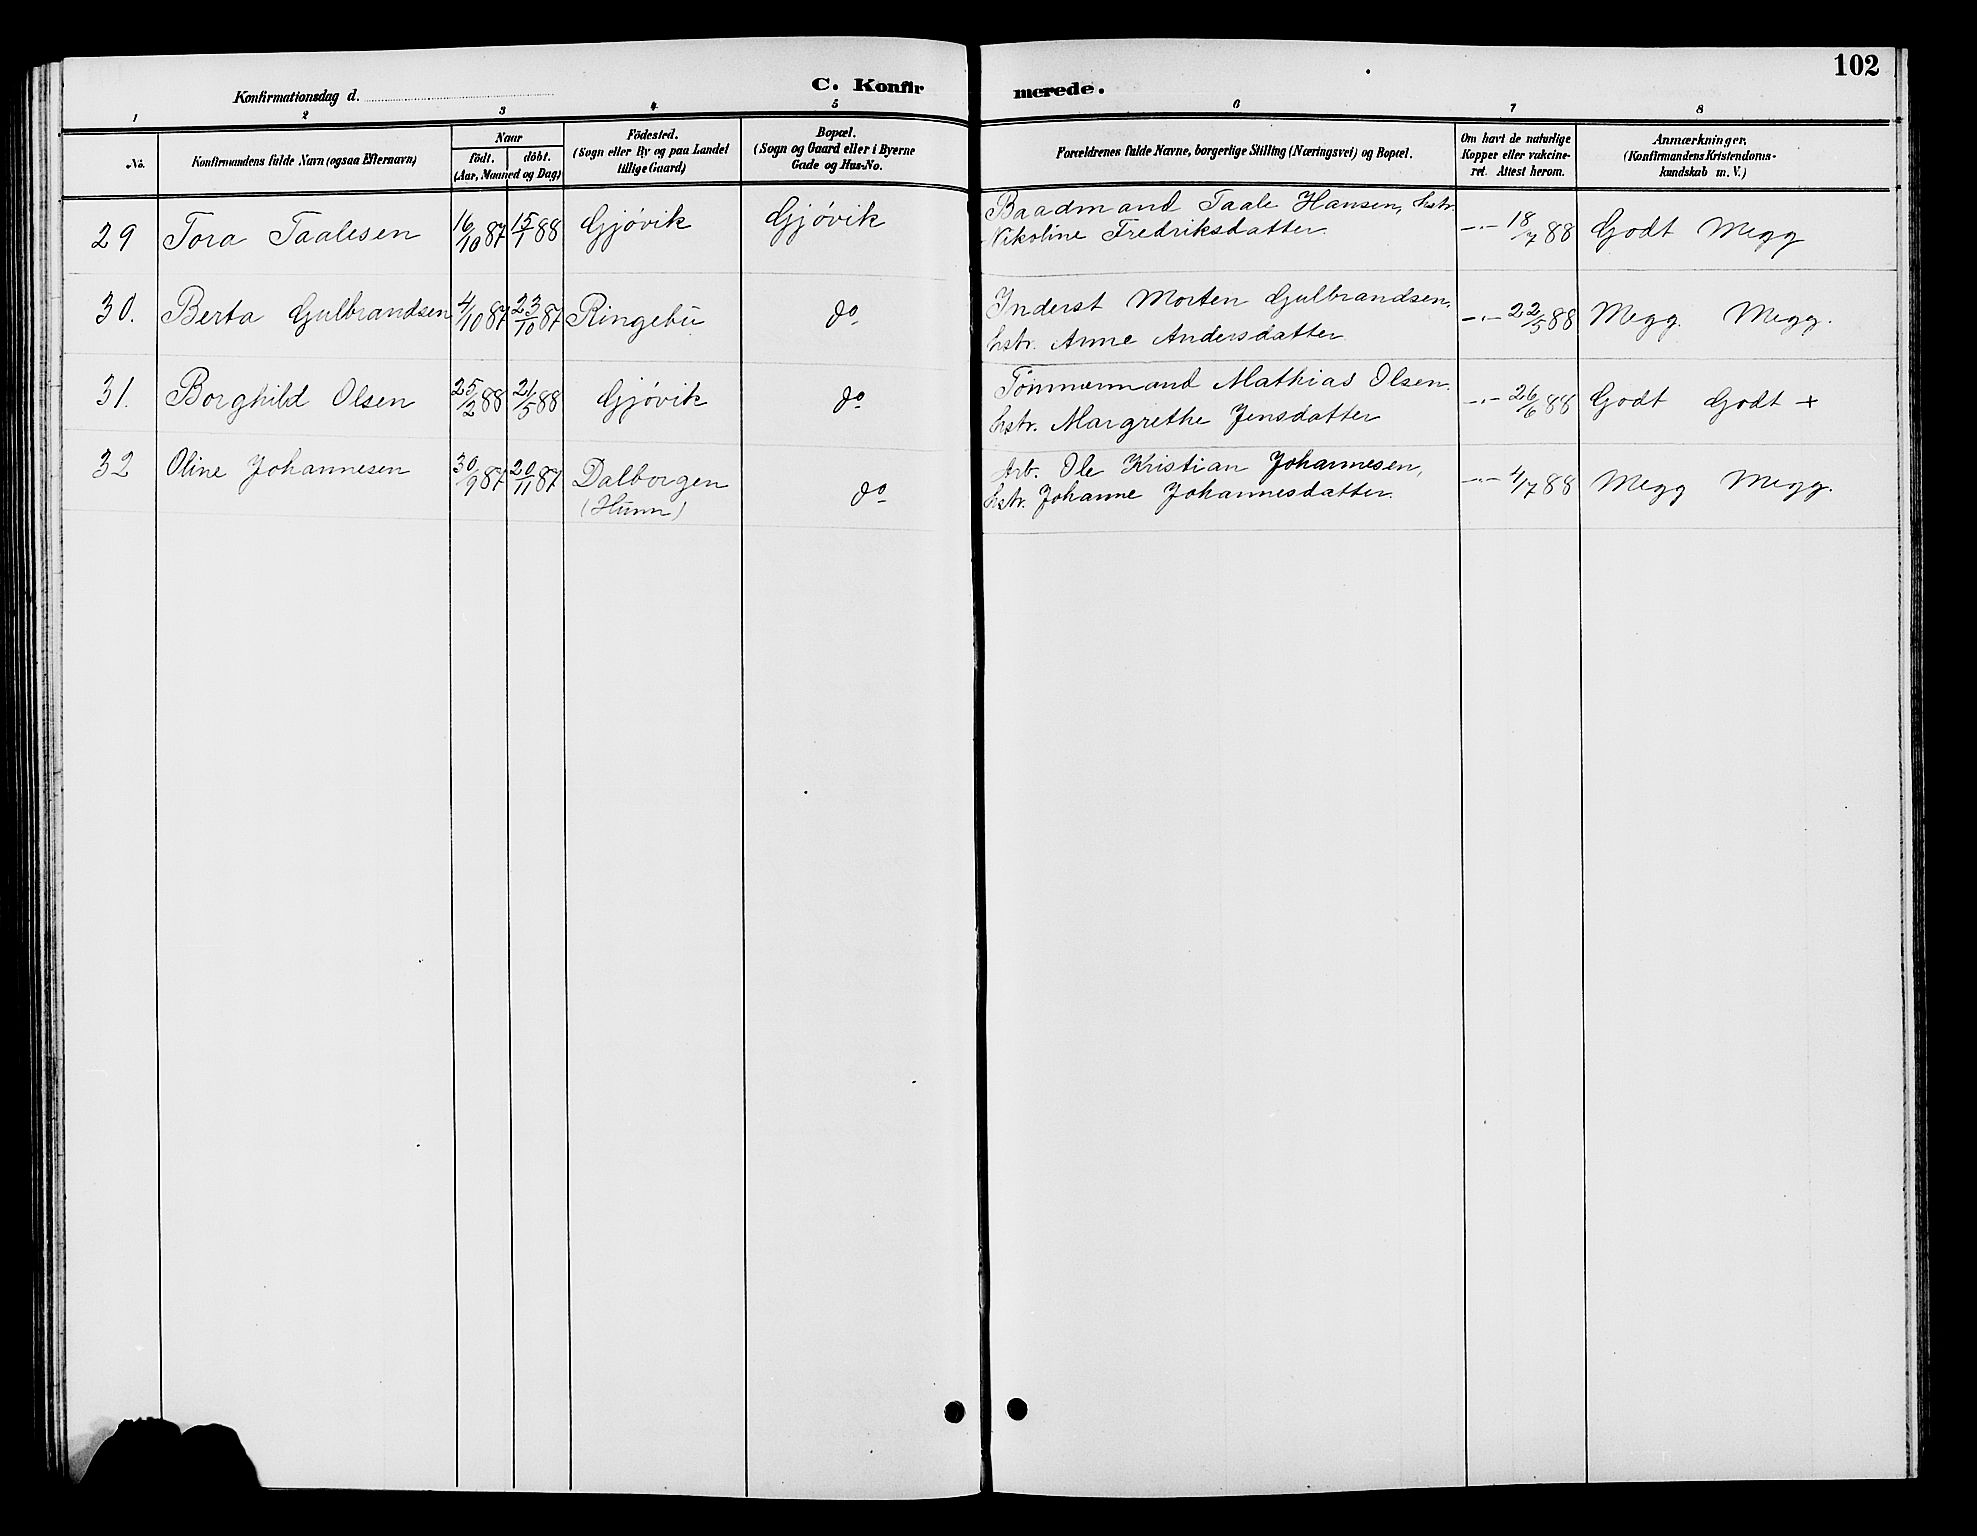 102
Konfirmationsdag d.
C. Konfirmerede.
1 2 3 4 5 6 7 8
No.
Konfirmandens fulde Navn (ogsaa Efternavn)
Naar
födt. döbt.
(Aar, Maaned og Dag)
Födested.
(Sogn eller By og paa Landet
tillige Gaard)
Bopæl.
(Sogn og Gaard eller i Byerne
Gade og Hus-No.
Forældrenes fulde Navne, borgerlige Stilling (Næringsvei) og Bopæl.
Om havt de naturlige
Kopper eller vakcine-
ret. Attest herom.
Anmærkninger.
(Konfirmandens Kristendoms-
kundskab m. V.)
29 Tora Taalesen 16/10 87 15/1 88 Gjøvik Gjøvik Baadmand Taale Hansen, hstr.
Nikoline Fredriksdatter. -"- 18/7 88 Godt Megg
30. Berta Gulbrandsen 4/10 87 23/10 87 Ringebu do Inderst Morten Gulbrandsen,
hstr. Anne Andersdatter. -"- 22/5 88 Megg. Megg.
31. Borghild Olsen 25/2 88 21/5 88 Gjøvik do Tømmermand Mathias Olsen.
hstr. Margrethe Jensdatter -"- 26/6 88 Godt Godt +
32 Oline Johannesen 30/9 87 20/11 87 Dalborgen
(Hunn) do Arb. Ole Kristian Johannesen,
hstr. Johanne Johannesdatter. -"- 4/7 88 Megg Megg.